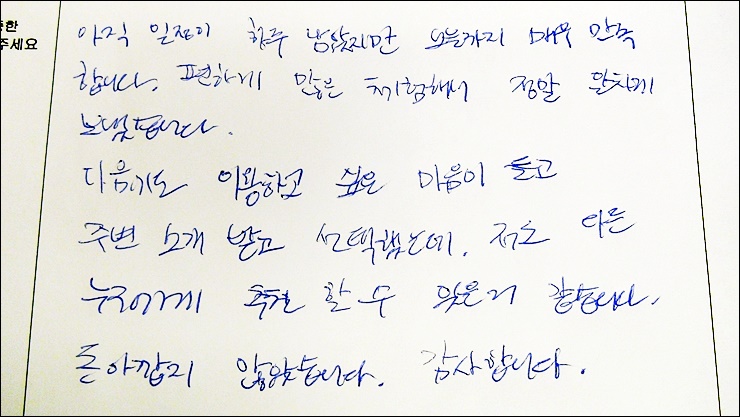 중한
주세요
아직 일정이 하루 남았지만 오늘까지 매우 만족
합니다. 편하게 많은 체험해서 정말 알차게
보냈습니다.
다음에도 이용하고 싶은 마음이 들고
주변 소개 받고 선택했는데, 저도 다른
누구에게 추천 할 수 있을거 같습니다.
돈 아깝지 않았습니다. 감사합니다.